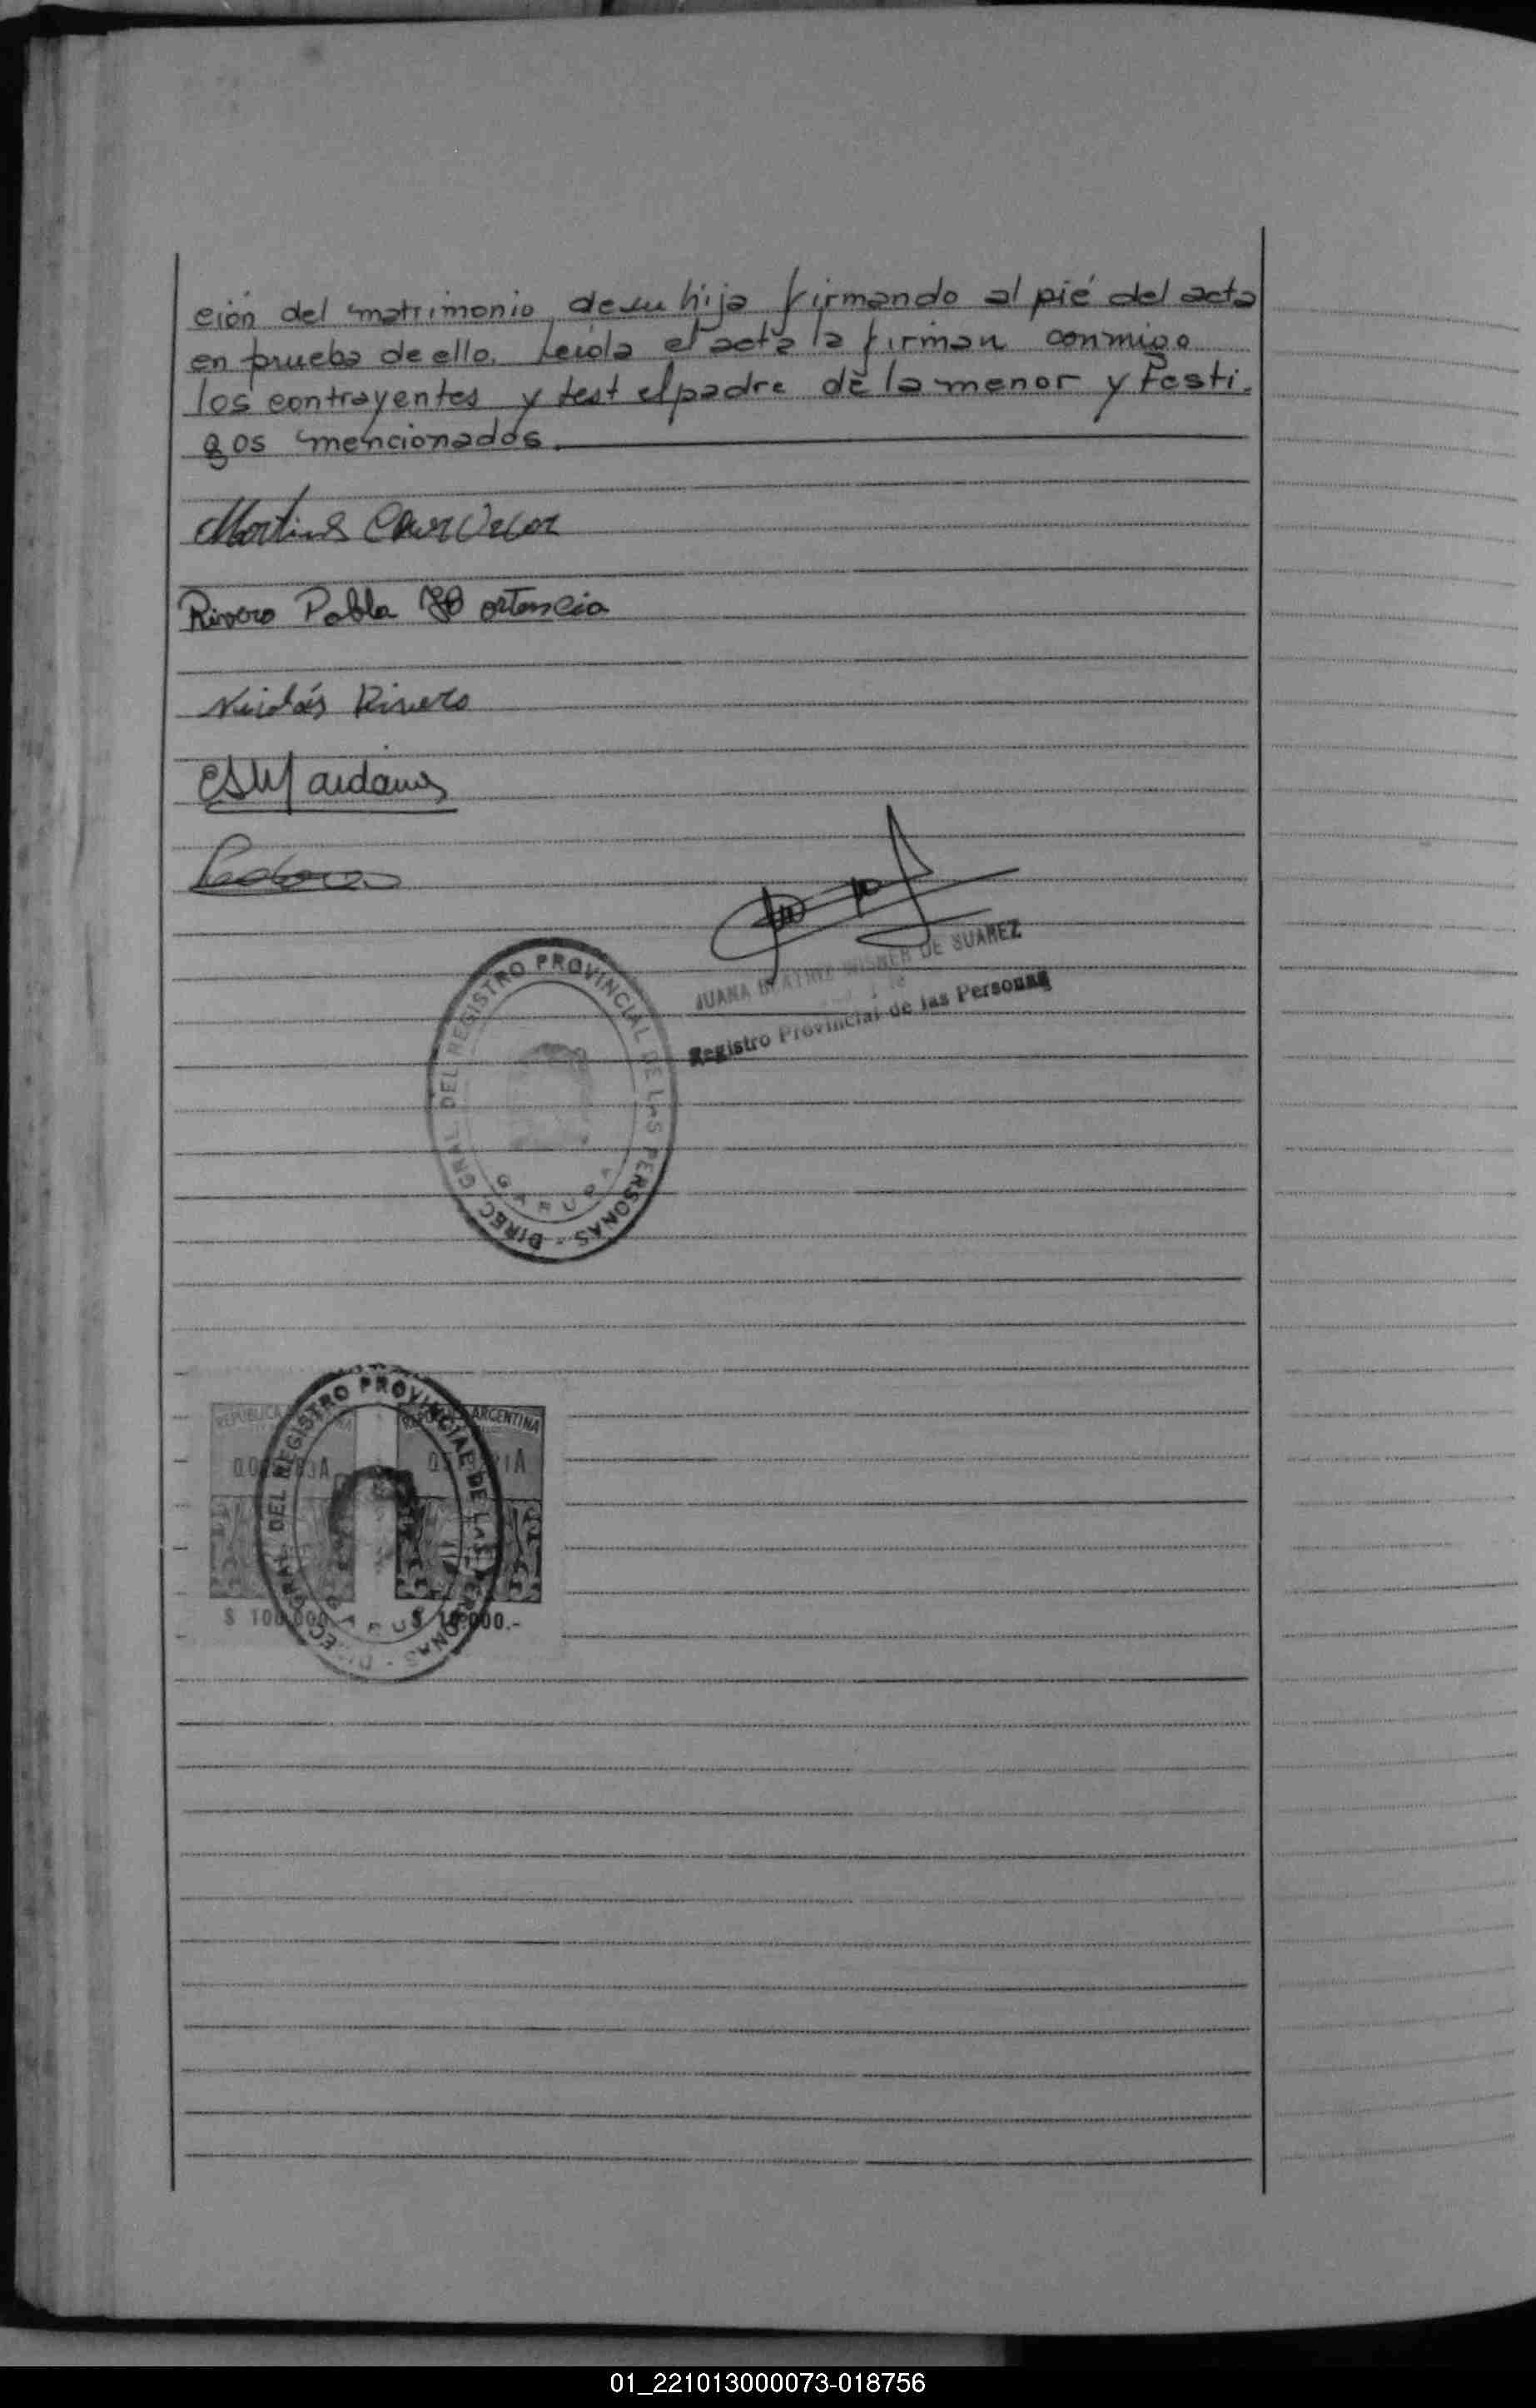 ción del matrimonio de su hija firmando al pié del acta
en prueba de ello. Leida el acta la firman conmigo
los contrayentes y test el padre de la menor y testi-
gos mencionados.
Rivero Pabla Hortencia
Nicolás Rivero
JUANA BEATRIZ DE SUAREZ
Registro Provincial de las Personas
DIREC. GRAL. DEL REGISTRO PROVINCIAL DE LAS PERSONAS -
GARUPA
REPUBLICA ARGENTINA
REPUBLICA ARGENTINA
$ 100.000
$ 10.000.-
DIREC. GRAL. DEL REGISTRO PROVINCIAL DE LAS PERSONAS -
GARUPA
01_221013000073-018756